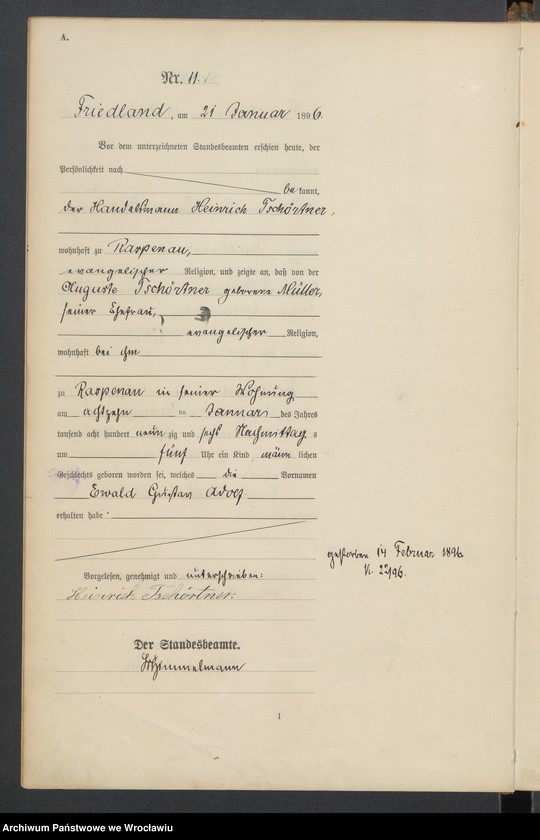 A.
Nr. 11.
Friedland, am 21 Januar 1896.
Vor dem unterzeichneten Standesbeamten erschien heute, der
Persönlichkeit nach
bekannt,
der Handelsmann Heinrich Tschörtner,
wohnhaft zu Raspenau,
evangelischer Religion, und zeigte an, daß von der
Auguste Tschörtner geborene Müller,
seiner Ehefrau,
evangelischer Religion,
wohnhaft bei ihm
zu Raspenau in seiner Wohnung
am achtzehn ten Januar des Jahres
tausend acht hundert neunzig und sechs Nachmittags
um fünf Uhr ein Kind männlichen
Geschlechts geboren worden sei, welches die Vornamen
Ewald Gustav Adolf
erhalten habe.
Vorgelesen, genehmigt und unterschrieben:
Heinrich Tschörtner.
Der Standesbeamte.
gestorben 14 Februar 1896
N. 22/96.
1
Archiwum Państwowe we Wrocławiu